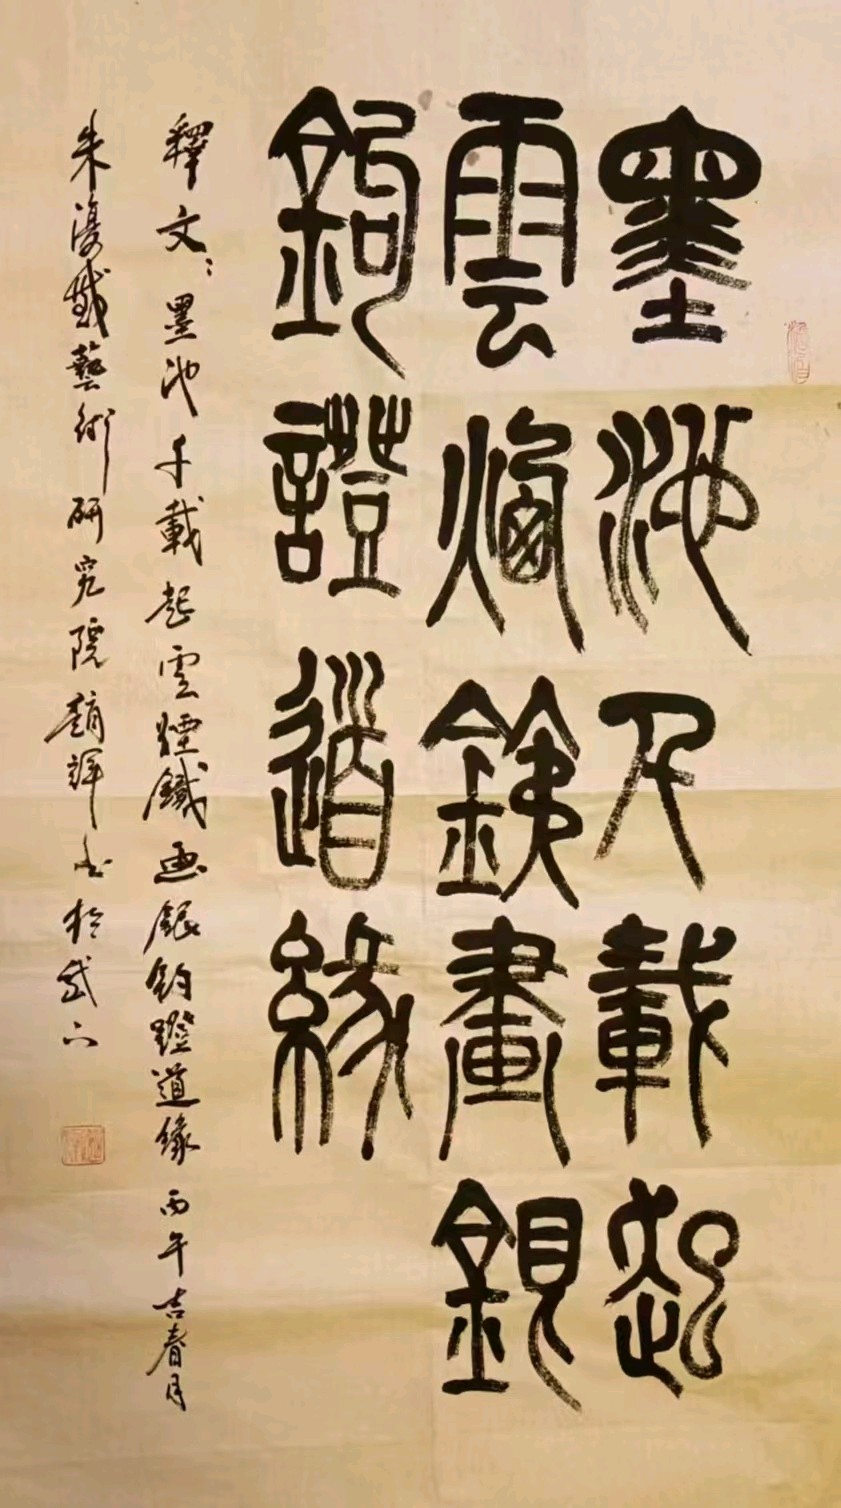 墨池千載起
雲煙鐵畫銀
鉤證道緣
釋文：墨池千載起雲煙鐵画銀鈎證道緣 丙午吉春月
朱漫戡藝術研究院趙辉书於